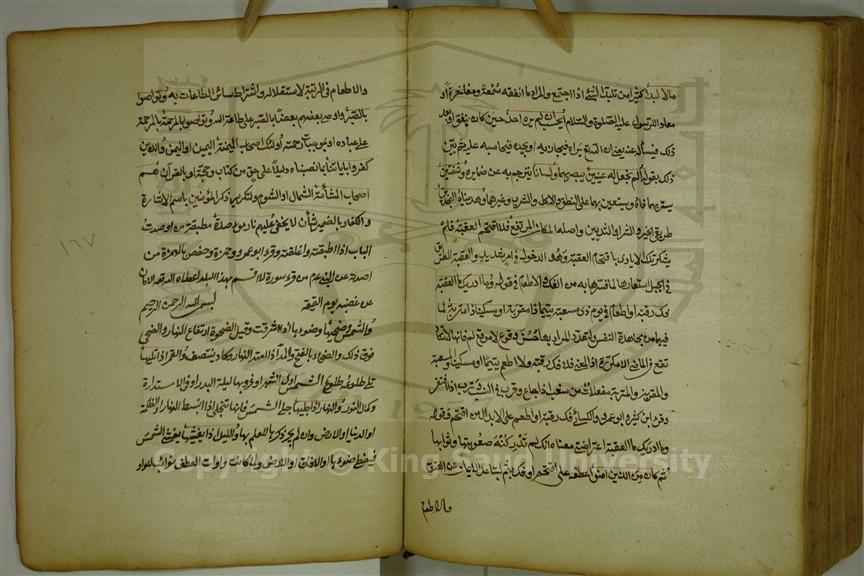 مالا لبدا كثيرا من تلبد الشئ اذا اجتمع والمراد ما انفقه سمعة ومفاخرة او
معاداة للرسول عليه الصلوة والسلام ايحسب ان لم يره احد حين كان ينفق او بعد
ذلك فيسأله عنه يعني ان الله تع يراه فيجازيه او يجده فيحاسبه عليه ثم بين
ذلك بقوله الم نجعل له عينين يبصر بهما ولسانا يترجم به عن ضمايره وشفتين
يستر بهما فاه ويستعين بهما على النطق والاكل والشرب وغيرها وهديناه النجدين
طريقي الخير والشر او الثديين واصله المكان المرتفع فلا اقتحم العقبة فلم
يشكر تلك الايادي باقتحام العقبة وهو الدخول في امر شديد والعقبة الطريق
في الجبل استعارها لما فسرها به من الفك والاطعام في قوله وما ادريك ما العقبة
فك رقبة او اطعام في يوم ذي مسغبة يتيما ذا مقربة او مسكينا ذا متربة لما
فيهما من مجاهدة النفس ولتعدد المراد بها حسن وقوع لا موقع لم فانها لا تكاد
تقع في الماضي الا مكررة اذ المعنى فلا فك رقبة ولا اطعم يتيما او مسكينا والمسغبة
والمقربة والمتربة مفعلات من سغب اذا جاع وقرب في النسب وترب اذا افتقر
وقرء ابن كثير وابو عمرو والكسائي فك رقبة او اطعم على الابدال من اقتحم وقوله
وما ادريك ما العقبة اعتراض معناه انك لم تدر كنه صعوبتها وثوابها
ثم كان من الذين امنوا عطفه على اقتحم او فك بثم لتباعد الايمان عن العتق
والاطعام
والاطعام في الرتبة لاستقلاله واشتراط سائر الطاعات به وتواصوا
بالصبر واوصى بعضهم بعضا بالصبر على طاعة الله وتواصوا بالمرحمة بالرحمة
على عباده او بموجبات رحمة اولئك اصحاب الميمنة اليمين او اليمن والذين
كفروا باياتنا بما نصبناه دليلا على حق من كتاب وحجة او بالقرآن هم
اصحاب المشأمة الشمال او الشوم ولتكرير ذكر المؤمنين باسم الاشارة
والكفار بالضمير شأن لا يخفى عليهم نار موصدة مطبقة من اوصدت
الباب اذا اطبقته واغلقته وقرء ابو عمرو وحمزة وحفص بالهمزة من
اصدته عن النبي عم من قرء سورة لا اقسم بهذا البلد اعطاه الله تع الامان
من غضبه يوم القيمة بسم الله الرحمن الرحيم
والشمس وضحيها وضوءها اذا اشرقت وقيل الضحوة ارتفاع النهار والضحى
فوق ذلك والضحاء بالفتح والمد اذا امتد النهار وكاد ينتصف والقمر اذا تليها
تلا طلوعه طلوع الشمس اول الشهر او غروبها ليلة البدر او في الاستدارة
وكمال النور والنهار اذا جليها جلى الشمس فانها تتجلى اذا انبسط النهار او الظلمة
او الدنيا او الارض وان لم يجر ذكرها للعلم بها والليل اذا يغشيها يغشى الشمس
فيغطي ضوءها او الافاق او الارض ولما كانت واوات العطف نوائب للواو
١٦٧
© King Saud University
1957